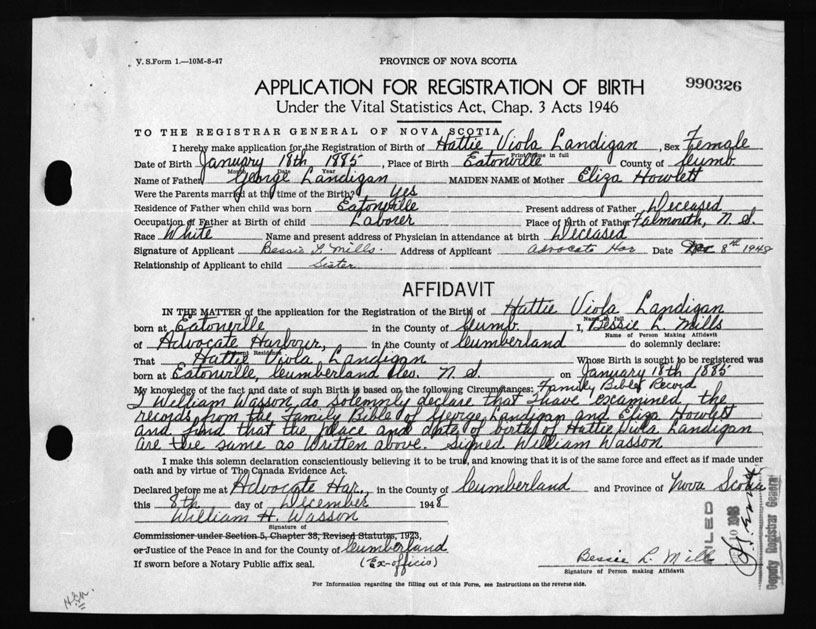 V. S. Form 1.—10M-8-47
PROVINCE OF NOVA SCOTIA
APPLICATION FOR REGISTRATION OF BIRTH
990326
Under the Vital Statistics Act, Chap. 3 Acts 1946
TO THE REGISTRAR GENERAL OF NOVA SCOTIA
I hereby make application for the Registration of Birth of Hattie Viola Landigan, Sex Female
Print Name in full
Date of Birth January 18th 1885, Place of Birth Eatonville County of Cumb.
Month Date Year
Name of Father George Landigan MAIDEN NAME of Mother Eliza Howlett
Were the Parents married at the time of the Birth? Yes
Residence of Father when child was born Eatonville Present address of Father Deceased
Occupation of Father at Birth of child Laborer Place of Birth of Father Falmouth, N.S.
Race White Name and present address of Physician in attendance at birth Deceased
Signature of Applicant Bessie L. Mills. Address of Applicant Advocate Har Date Dec 8th 1948
Relationship of Applicant to child Sister
AFFIDAVIT
IN THE MATTER of the application for the Registration of the Birth of Hattie Viola Landigan
Name in full
born at Eatonville in the County of Cumb. I, Bessie L. Mills
Name of Person Making Affidavit
of Advocate Harbour, in the County of Cumberland do solemnly declare:
Present Residence
That Hattie Viola Landigan Whose Birth is sought to be registered was
born at Eatonville, Cumberland Co. N.S. on January 18th 1885
My knowledge of the fact and date of such Birth is based on the following Circumstances: Family Bible Record
I William Wasson do solemnly declare that I have examined the
records from the Family Bible of George Landigan and Eliza Howlett
and find that the place and date of birth of Hattie Viola Landigan
are the same as written above. Signed William Wasson
I make this solemn declaration conscientiously believing it to be true, and knowing that it is of the same force and effect as if made under
oath and by virtue of The Canada Evidence Act.
Declared before me at Advocate Har., in the County of Cumberland and Province of Nova Scotia
this 8th day of December 1948
William H. Wasson
Signature of
Commissioner under Section 5, Chapter 38, Revised Statutes, 1923,
or Justice of the Peace in and for the County of Cumberland
If sworn before a Notary Public affix seal. (Ex-officio)
Bessie L. Mills
Signature of Person making Affidavit
Deputy Registrar General
For Information regarding the filling out of this Form, see Instructions on the reverse side.